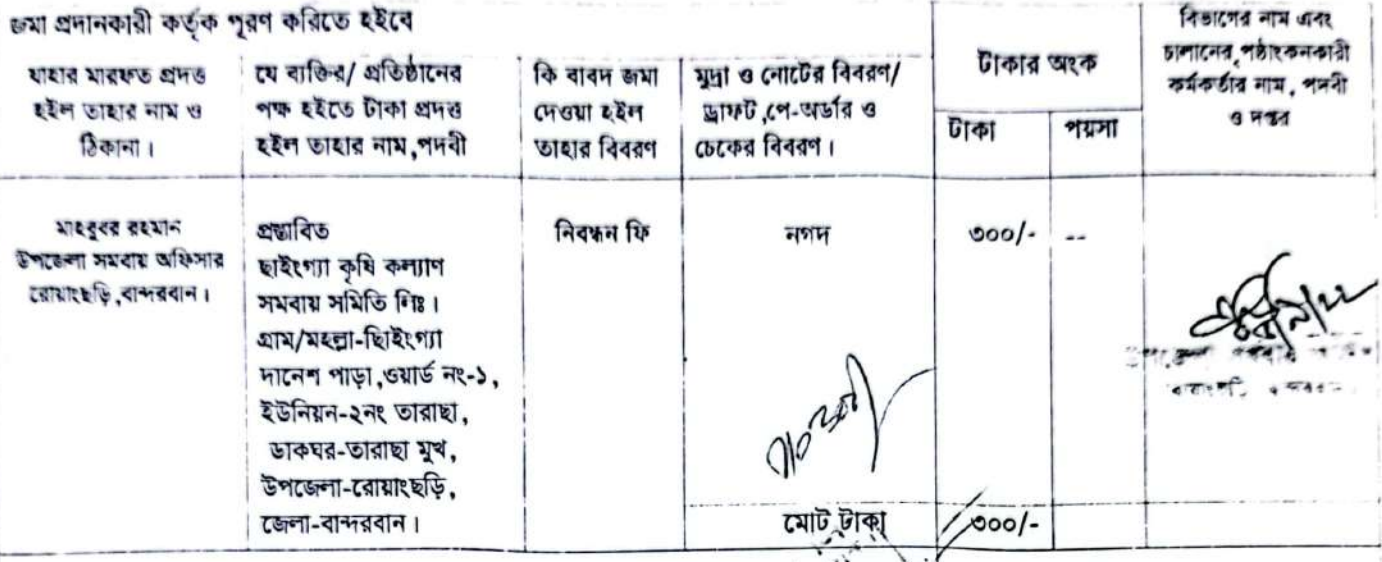 জমা প্রদানকারী কর্তৃক পূরণ করিতে হইবে
যাহার মারফত প্রদত্ত
হইল তাহার নাম ও
ঠিকানা।
যে ব্যক্তির/ প্রতিষ্ঠানের
পক্ষ হইতে টাকা প্রদত্ত
হইল তাহার নাম,পদবী
কি বাবদ জমা
দেওয়া হইল
তাহার বিবরণ
মুদ্রা ও নোটের বিবরণ/
ড্রাফট ,পে-অর্ডার ও
চেকের বিবরণ।
টাকার অংক
টাকা
পয়সা
বিভাগের নাম এবং
চালানের,পৃষ্ঠাংকনকারী
কর্মকর্তার নাম, পদবী
ও দপ্তর
মাহবুবর রহমান
উপজেলা সমবায় অফিসার
রোয়াংছড়ি,বান্দরবান।
প্রস্তাবিত
ছাইংগ্যা কৃষি কল্যাণ
সমবায় সমিতি লিঃ।
গ্রাম/মহল্লা-ছাইংগ্যা
দানেশ পাড়া,ওয়ার্ড নং-১,
ইউনিয়ন-২নং তারাছা,
ডাকঘর-তারাছা মুখ,
উপজেলা-রোয়াংছড়ি,
জেলা-বান্দরবান।
নিবন্ধন ফি
নগদ
৩০০/-
--
মোট টাকা
৩০০/-